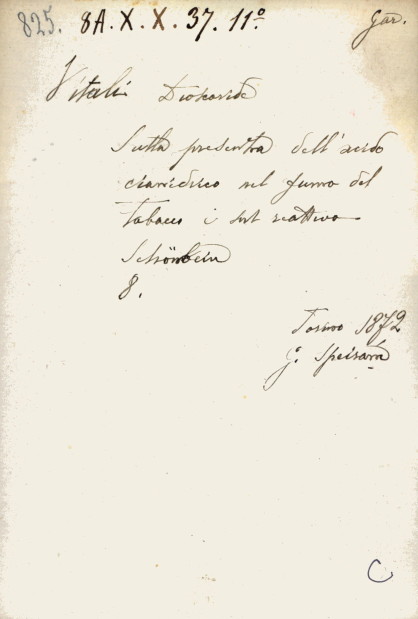 825. 8A. X. X. 37. 11º
Gar.
Vitali Dioscoride
Sulla presenza dell'acido
cianidrico nel fumo del
tabacco e sul reattivo
Schönbein
8.
Torino 1872
G. Speirani
C